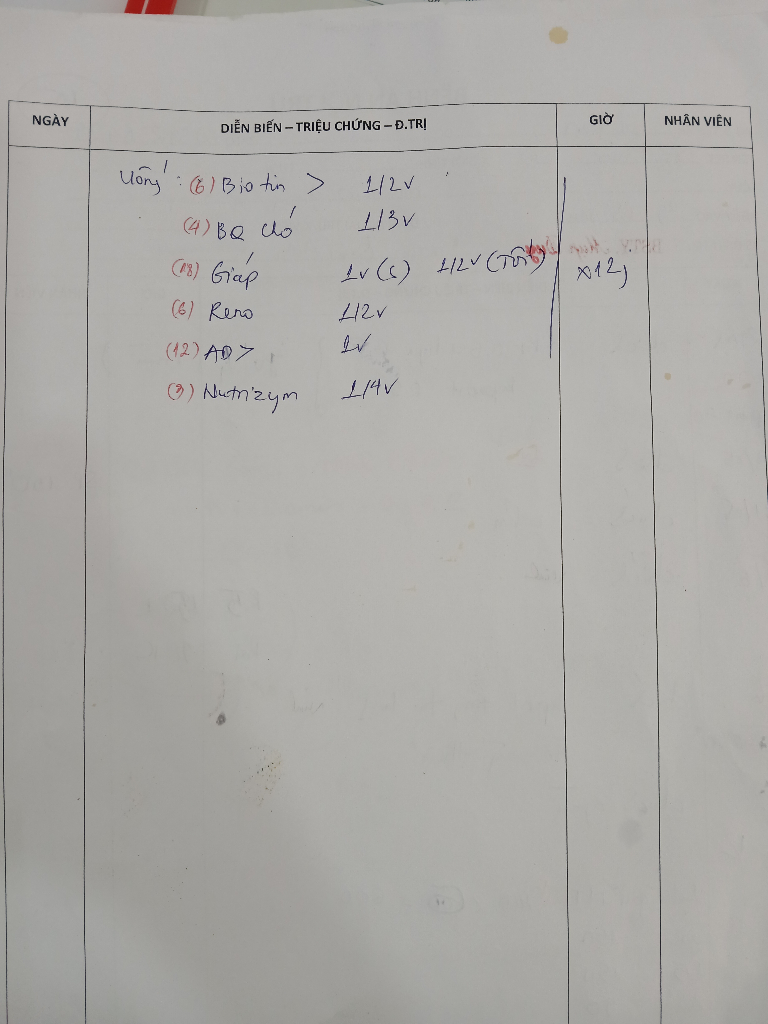 NGÀY DIỄN BIẾN – TRIỆU CHỨNG – Đ.TRỊ GIỜ NHÂN VIÊN
Uống: (6) Biotin > 1/2v
(4) BQ chó 1/3v
(18) Giáp 1v (S) 1/2v (Tối) x12j
(6) Reno 1/2v
(12) AD > 1v
(3) Nutrizym 1/4v